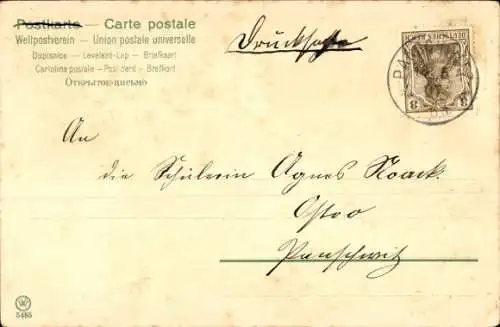 Postkarte — Carte postale
Weltpostverein — Union postale universelle
Dopisnice — Levelező-Lap — Briefkaart
Cartolina postale — Post card — Brefkort
Открытое письмо
Drucksache
DEUTSCHES REICH
8 8
An
die Schülerin Agnes Noack.
Panschwitz
5485